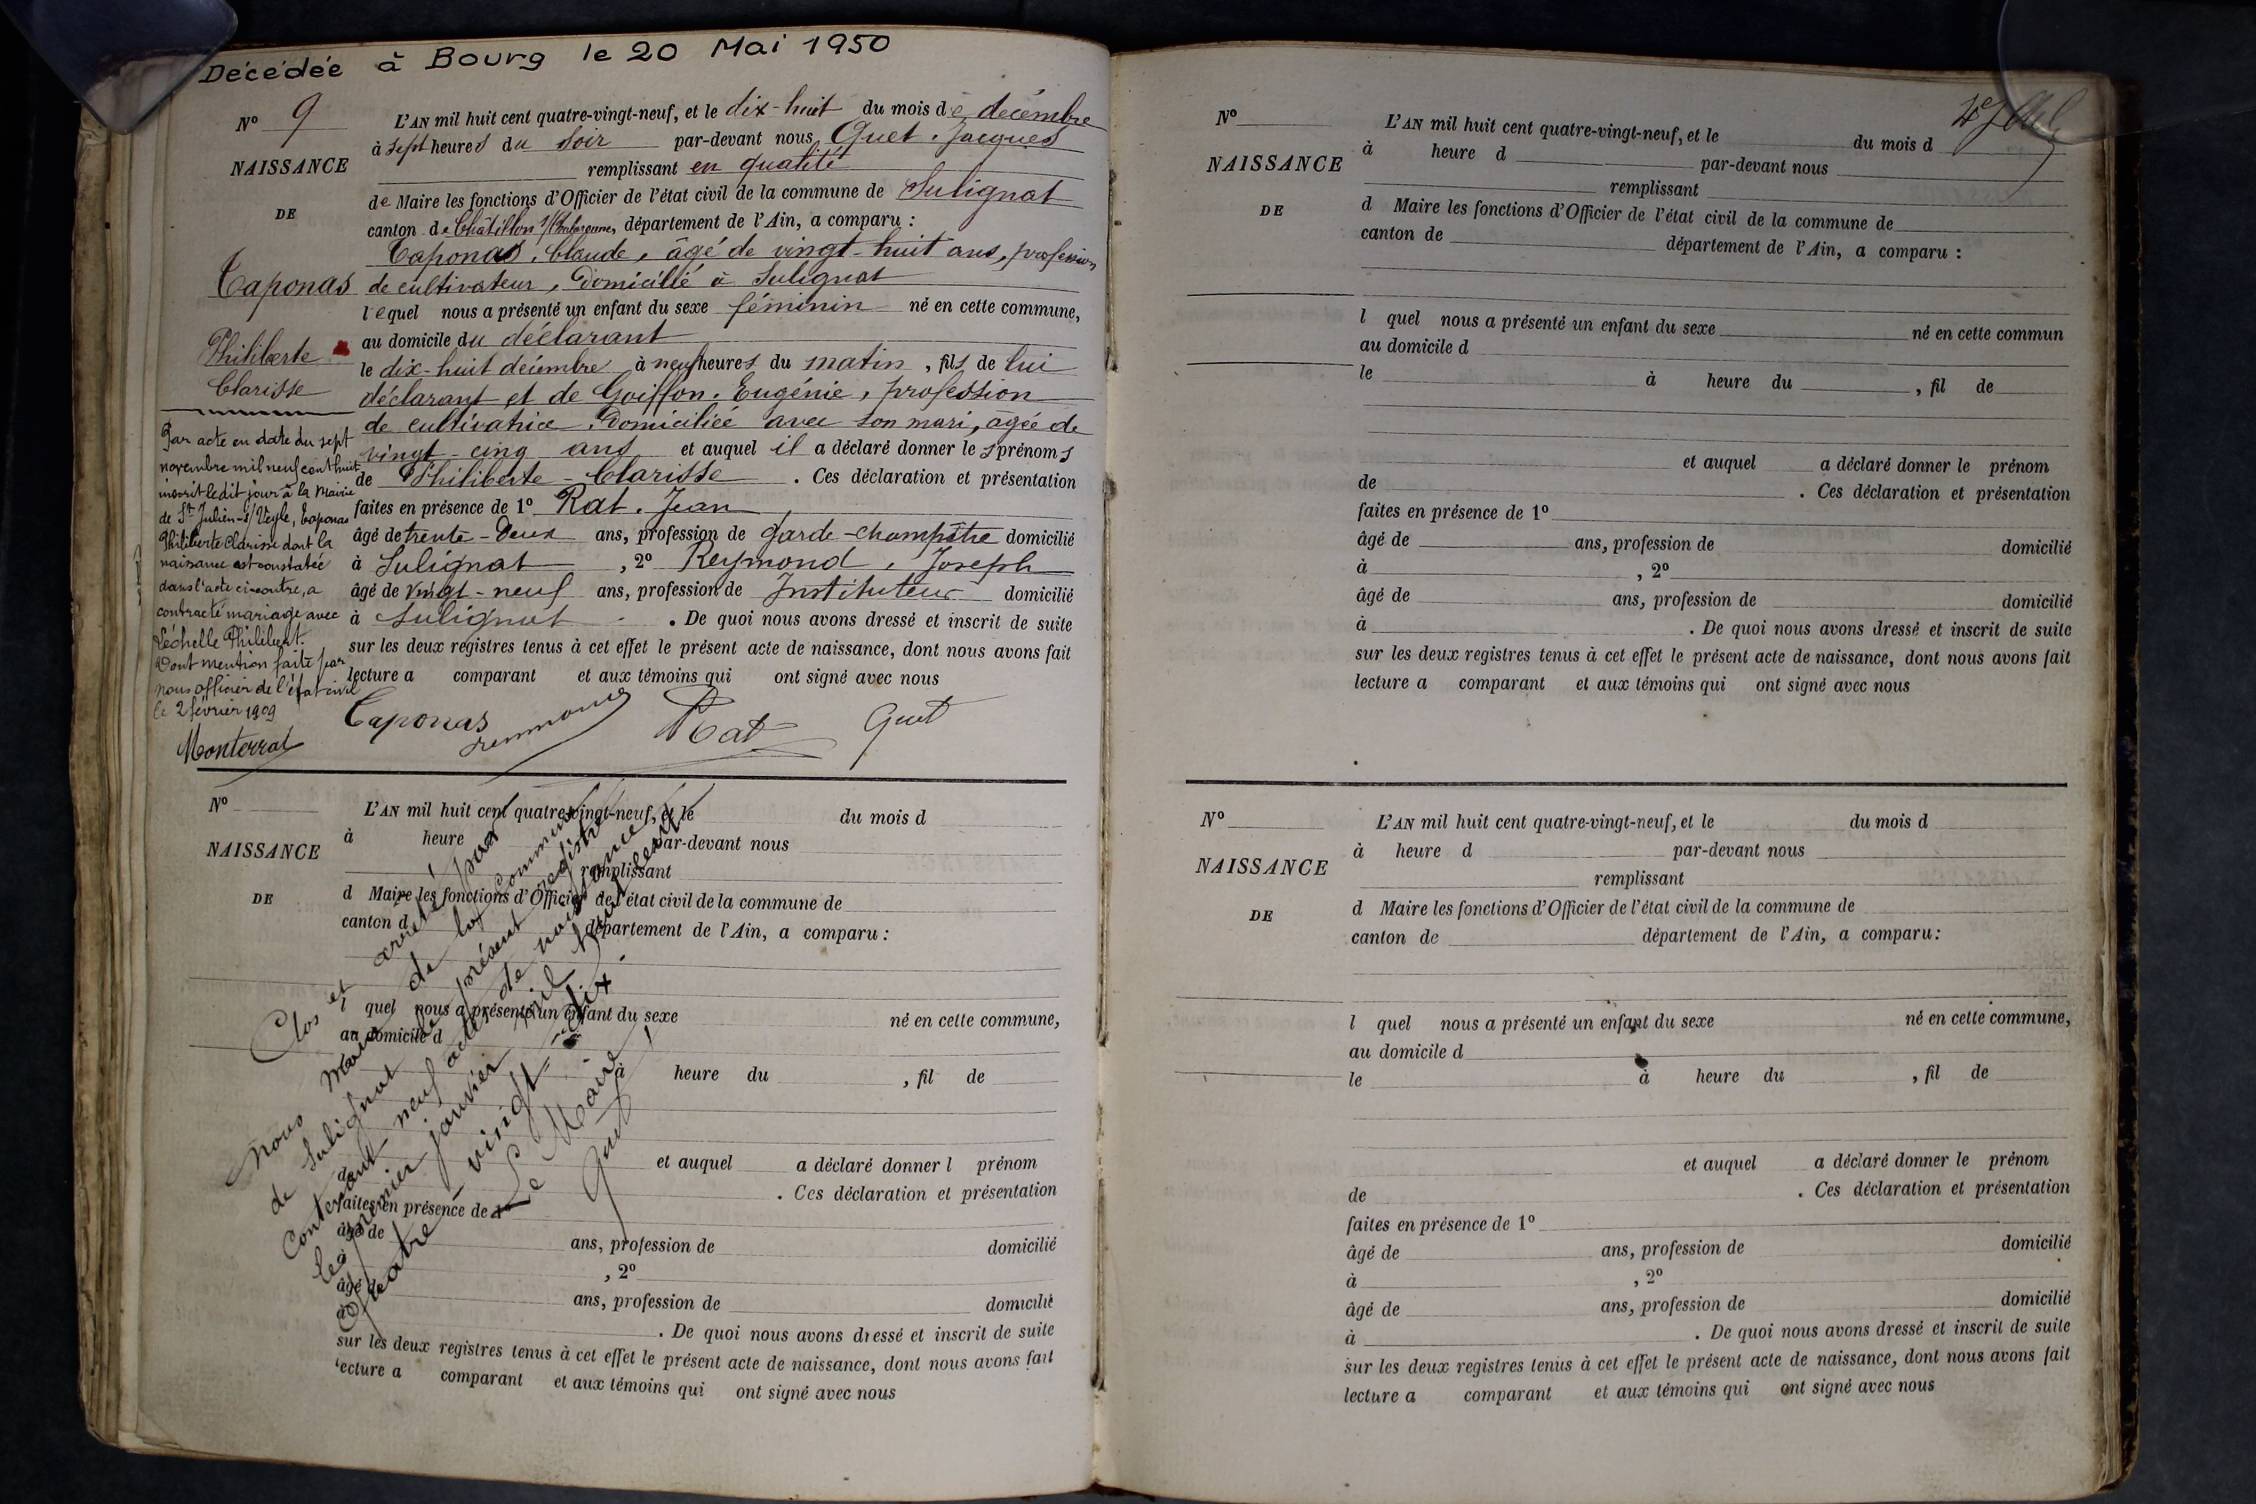 Décédée à Bourg le 20 Mai 1950
N° 9
NAISSANCE
DE
Taponas
Philiberte
Clarisse
Par acte en date du sept
novembre mil neuf cent huit
inscrit le dit jour à la Mairie
de St Julien-s/Veyle, Taponas
Philiberte Clarisse dont la
naissance est constatée
dans l'acte ci-contre, a
contracté mariage avec
Léchelle Philibert.
Dont mention faite par
nous officier de l'état civil
le 2 février 1909
Monterrat
L'AN mil huit cent quatre-vingt-neuf, et le dix-huit du mois de décembre
à sept heures du soir par-devant nous Quet. Jacques
remplissant en qualité
de Maire les fonctions d'Officier de l'état civil de la commune de Sulignat
canton de Châtillon s/Chalaronne, département de l'Ain, a comparu :
Taponas. Claude, âgé de vingt-huit ans, profession
de cultivateur, domicilié à Sulignat
lequel nous a présenté un enfant du sexe féminin né en cette commune,
au domicile du déclarant
le dix-huit décembre à neuf heures du matin, fils de lui
déclarant et de Goiffon. Eugénie, profession
de cultivatrice, domiciliée avec son mari, âgée de
vingt-cinq ans et auquel il a déclaré donner les prénoms
de Philiberte-Clarisse. Ces déclaration et présentation
faites en présence de 1° Rat. Jean,
âgé de trente-deux ans, profession de garde-champêtre domicilié
à Sulignat, 2° Reymond, Joseph
âgé de vingt-neuf ans, profession de Instituteur domicilié
à Sulignat. De quoi nous avons dressé et inscrit de suite
sur les deux registres tenus à cet effet le présent acte de naissance, dont nous avons fait
lecture a comparant et aux témoins qui ont signé avec nous
Taponas Rat Quet
N°
NAISSANCE
DE
L'AN mil huit cent quatre-vingt-neuf, et le du mois d
à heure par-devant nous
remplissant
d Maire les fonctions d'Officier de l'état civil de la commune de
canton d département de l'Ain, a comparu :
l quel nous a présenté un enfant du sexe né en cette commune,
au domicile d
à heure du , fil de
et auquel a déclaré donner l prénom
de . Ces déclaration et présentation
faites en présence de 1°
âgé de ans, profession de domicilié
à , 2°
âgé de ans, profession de domicilié
à . De quoi nous avons dressé et inscrit de suite
sur les deux registres tenus à cet effet le présent acte de naissance, dont nous avons fait
lecture a comparant et aux témoins qui ont signé avec nous
Clos et arrêté par
nous Maire de la commune
de Sulignat le présent registre
contenant neuf actes de naissance
le premier janvier mil huit cent
quatre-vingt-dix.
Le Maire,
Quet
N°
NAISSANCE
DE
L'AN mil huit cent quatre-vingt-neuf, et le du mois d
à heure d par-devant nous
remplissant
d Maire les fonctions d'Officier de l'état civil de la commune de
canton de département de l'Ain, a comparu :
l quel nous a présenté un enfant du sexe né en cette commun
au domicile d
le à heure du , fil de
et auquel a déclaré donner le prénom
de . Ces déclaration et présentation
faites en présence de 1°
âgé de ans, profession de domicilié
à , 2°
âgé de ans, profession de domicilié
à . De quoi nous avons dressé et inscrit de suite
sur les deux registres tenus à cet effet le présent acte de naissance, dont nous avons fait
lecture a comparant et aux témoins qui ont signé avec nous
N°
NAISSANCE
DE
L'AN mil huit cent quatre-vingt-neuf, et le du mois d
à heure d par-devant nous
remplissant
d Maire les fonctions d'Officier de l'état civil de la commune de
canton de département de l'Ain, a comparu:
l quel nous a présenté un enfant du sexe né en cette commune,
au domicile d
le à heure du , fil de
et auquel a déclaré donner le prénom
de . Ces déclaration et présentation
faites en présence de 1°
âgé de ans, profession de domicilié
à , 2°
âgé de ans, profession de domicilié
à . De quoi nous avons dressé et inscrit de suite
sur les deux registres tenus à cet effet le présent acte de naissance, dont nous avons fait
lecture a comparant et aux témoins qui ont signé avec nous